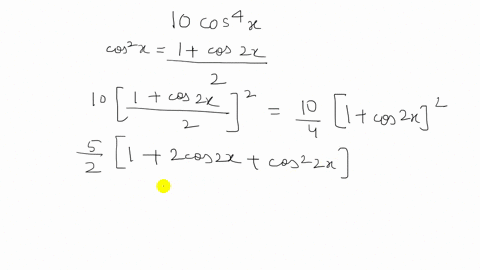 10 cos⁴x
cos²x = (1 + cos 2x)/2
10 [(1 + cos 2x)/2]² = 10/4 [1 + cos 2x]²
5/2 [1 + 2cos2x + cos²2x]